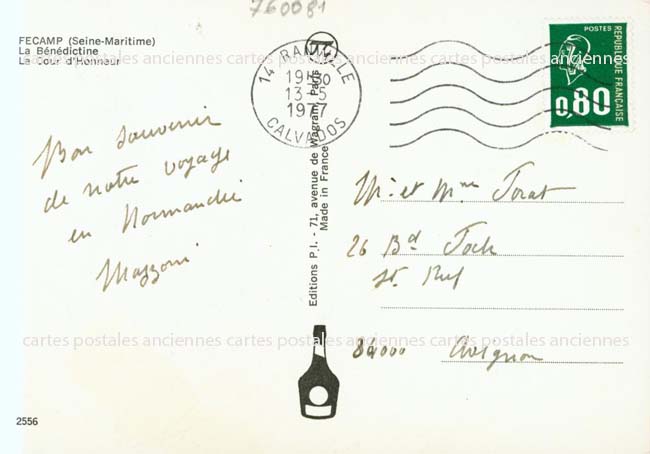 760081
FECAMP (Seine-Maritime)
La Bénédictine
La Cour d'Honneur
14 RANVILLE
19H30
13-5
1977
CALVADOS
POSTES
REPUBLIQUE FRANÇAISE
0,80
cartes postales anciennes cartes postales anciennes cartes postales anciennes
Bon souvenir
de notre voyage
en Normandie
Mazzoni
Editions P.I. - 71, avenue de Wagram, Paris
Made in France
M. et Mme
26 Bd
St. Ruf
84000 Avignon
cartes postales anciennes cartes postales anciennes cartes postales anciennes
2556